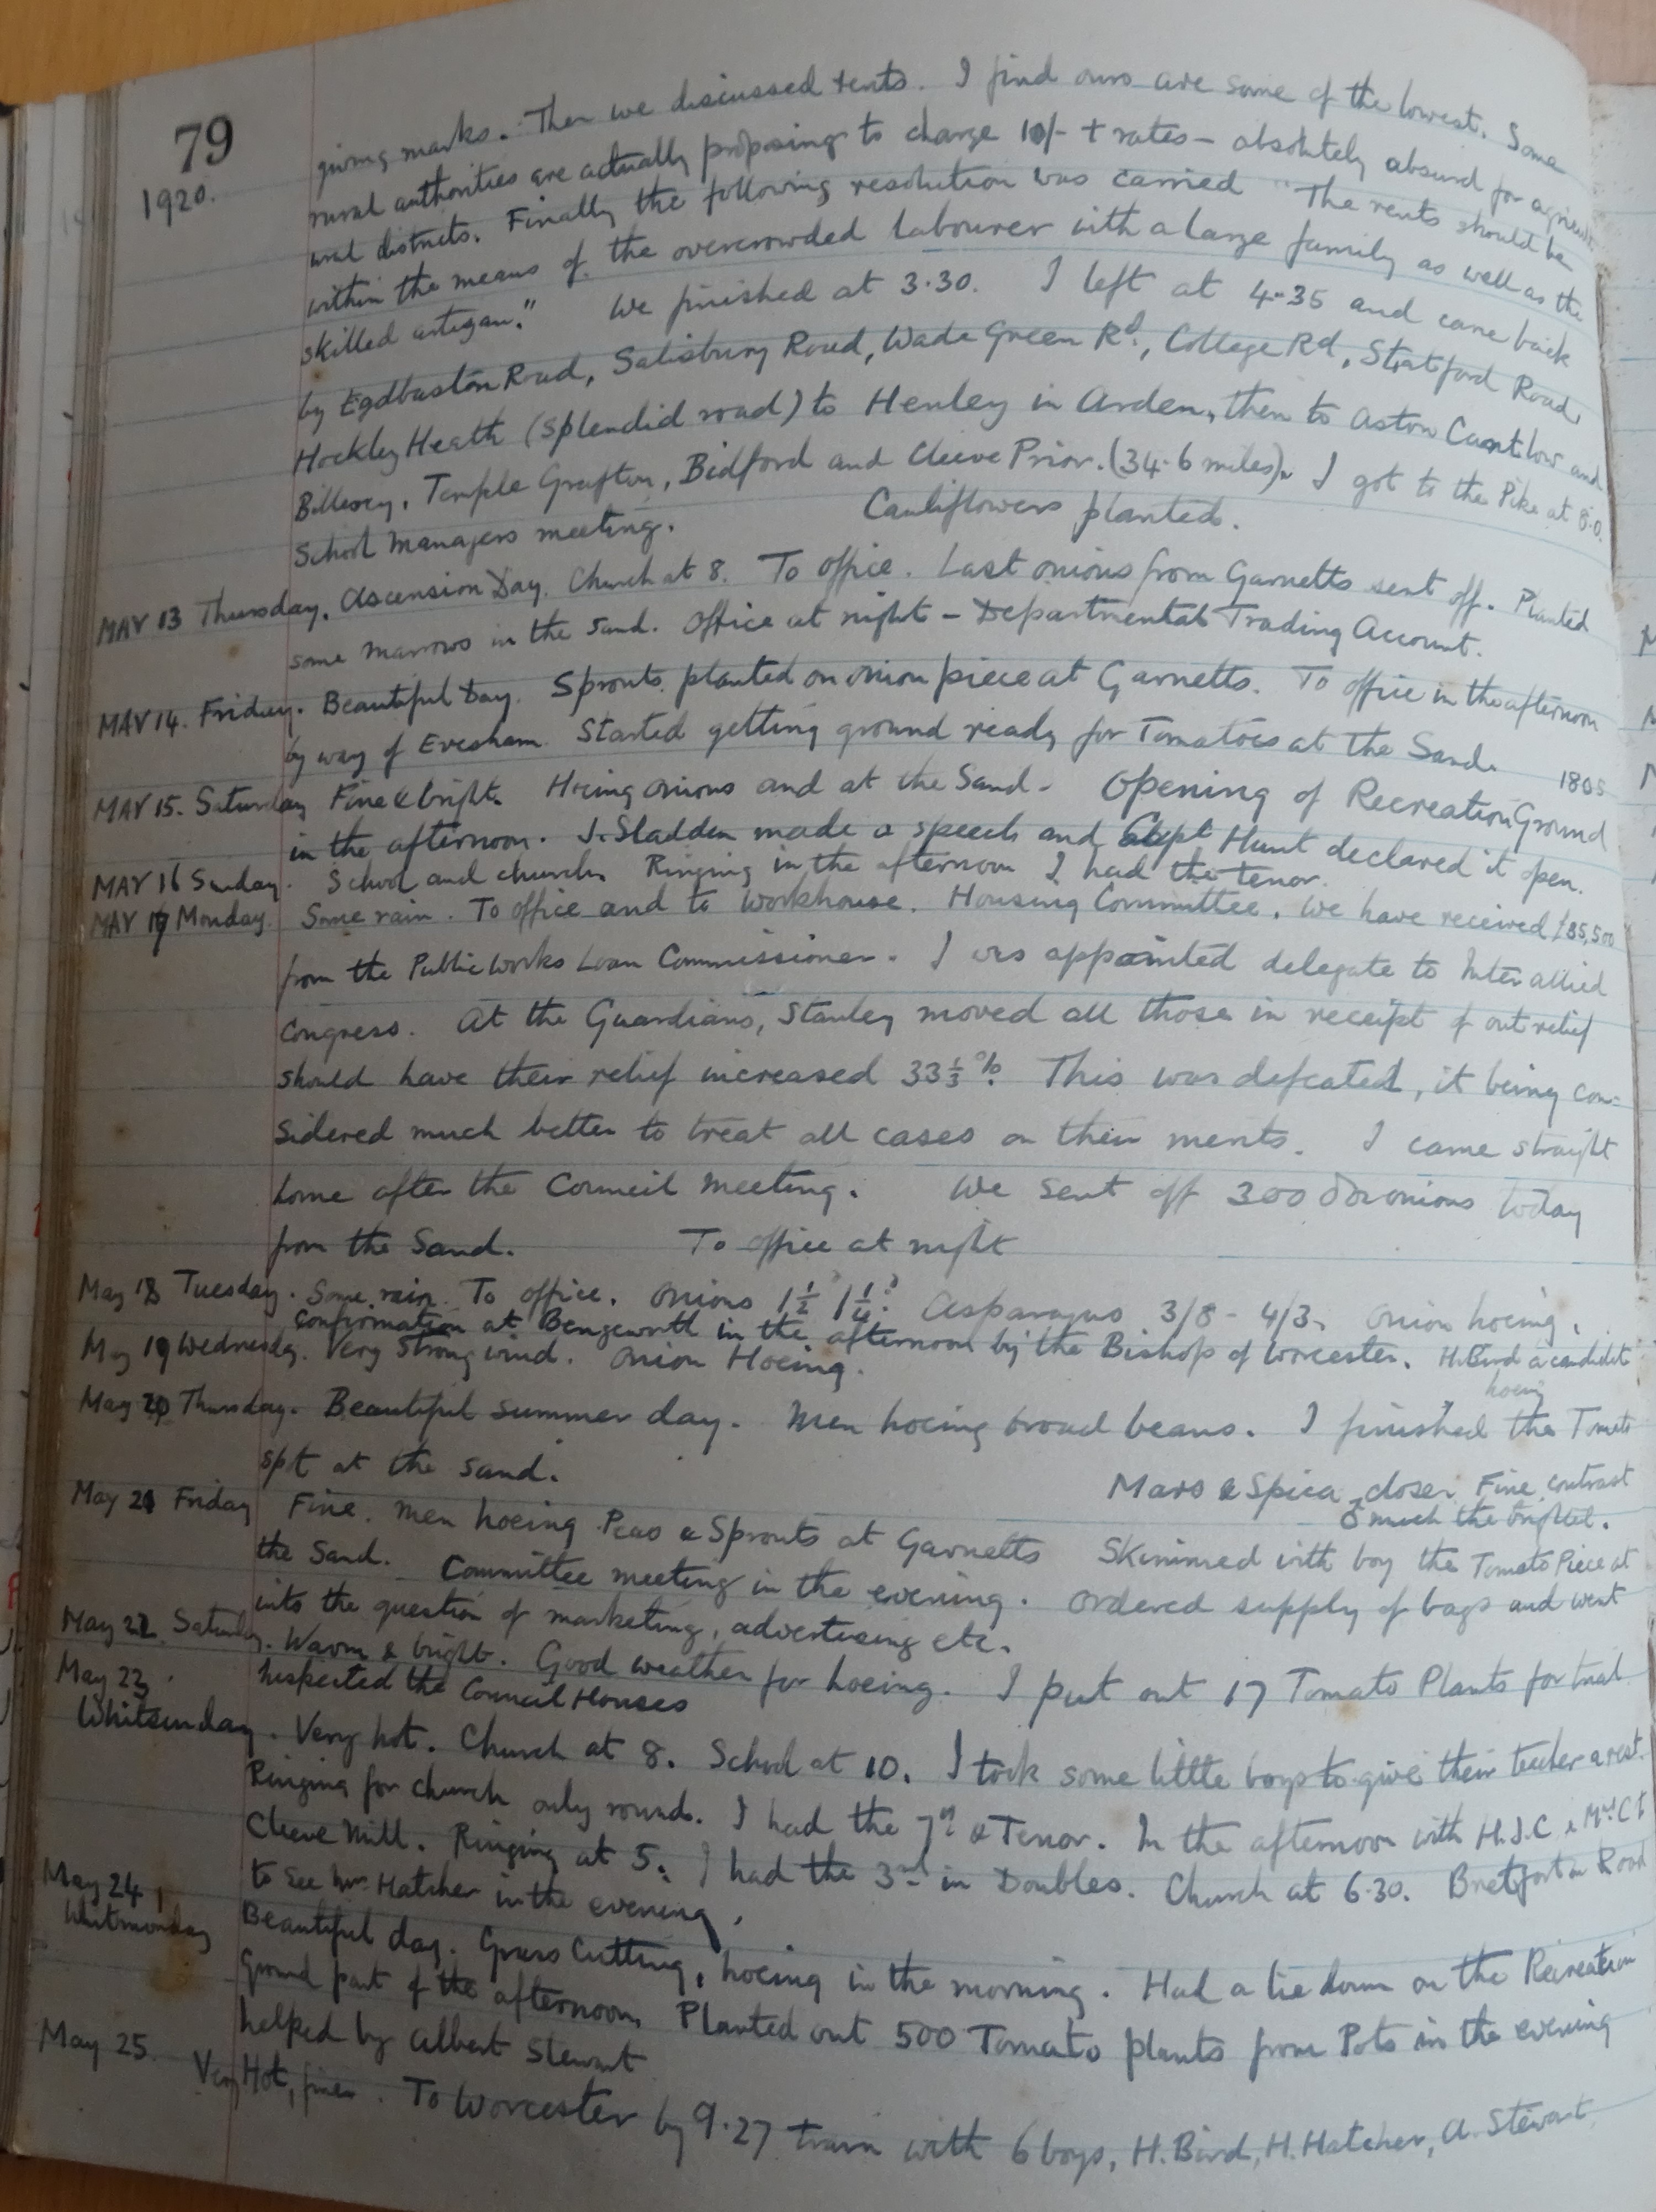 79
1920.
giving marks. Then we discussed rents. I find ours are some of the lowest. Some
rural authorities are actually proposing to charge 10/- + rates - absolutely absurd for agricult-
ural districts. Finally the following resolution was carried "The rents should be
within the means of the overcrowded labourer with a large family as well as the
skilled artizan." We finished at 3.30. I left at 4-35 and came back
by Egdbaston Road, Salisbury Road, Wade Green Rd., College Rd, Stratford Road,
Hockley Heath (splendid road) to Henley in Arden, then to Aston Cantlow and
Billesey, Temple Grafton, Bidford and Cleeve Prior. (34.6 miles). I got to the Pike at 8.0.
School Managers meeting. Cauliflowers planted.
MAY 13 Thursday. Ascension Day. Church at 8. To office. Last onions from Garnetts sent off. Planted
some marrows in the Sand. Office at night - Departmental Trading Account.
MAY 14. Friday. Beautiful Day. Sprouts planted on onion piece at Garnetts. To office in the afternoon
by way of Evesham. Started getting ground ready for Tomatoes at the Sand. 1805
MAY 15. Saturday Fine & bright. Hoeing onions and at the Sand. Opening of Recreation Ground
in the afternoon. J. Sladden made a speech and Capt Hunt declared it open.
MAY 16 Sunday. School and church. Ringing in the afternoon I had the tenor.
MAY 17 Monday. Some rain. To office and to Workhouse. Housing Committee. We have received £85,500
from the Public Works Loan Commissioner. I was appointed delegate to Inter allied
Congress. At the Guardians, Stanley moved all those in receipt of out relief
should have their relief increased 33⅓%. This was defeated, it being con-
sidered much better to treat all cases on their merits. I came straight
home after the Council Meeting. We sent off 300 doz onions today
from the Sand. To office at night
May 18 Tuesday. Some rain. To office. Onions 1½ 1¼. Asparagus 3/8 - 4/3. Onion hoeing.
Confirmation at Bengeworth in the afternoon by the Bishop of Worcester. H. Bird a candidate
May 19 Wednesday. Very strong wind. Onion Hoeing.
May 20 Thursday. Beautiful summer day. Men hoeing broad beans. I finished hoeing the Tomato
spot at the Sand. Mars & Spica closer. Fine contrast
♂ much the brightest.
May 21 Friday Fine. Men hoeing Peas & Sprouts at Garnetts Skimmed with boy the Tomato Piece at
the Sand. Committee meeting in the evening. Ordered supply of bags and went
into the question of marketing, advertising etc.
May 22 Saturday. Warm & bright. Good weather for hoeing. I put out 17 Tomato Plants for trial.
Inspected the Council Houses
May 23
Whitsunday. Very hot. Church at 8. School at 10. I took some little boys to give their teacher a rest.
Ringing for church only rounds. I had the 7th & Tenor. In the afternoon with H.J.C &
Cleeve Mill. Ringing at 5. I had the 3rd in Doubles. Church at 6.30. Bretforton Road
to see Mrs Hatcher in the evening.
May 24
Whitmonday Beautiful day. Grass Cutting, hoeing in the morning. Had a lie down on the Recreation
Ground part of the afternoon. Planted out 500 Tomato plants from Pots in the evening
helped by Albert Stewart
May 25. Very Hot, fine. To Worcester by 9.27 train with 6 boys, H. Bird, H. Hatcher, A. Stewart,